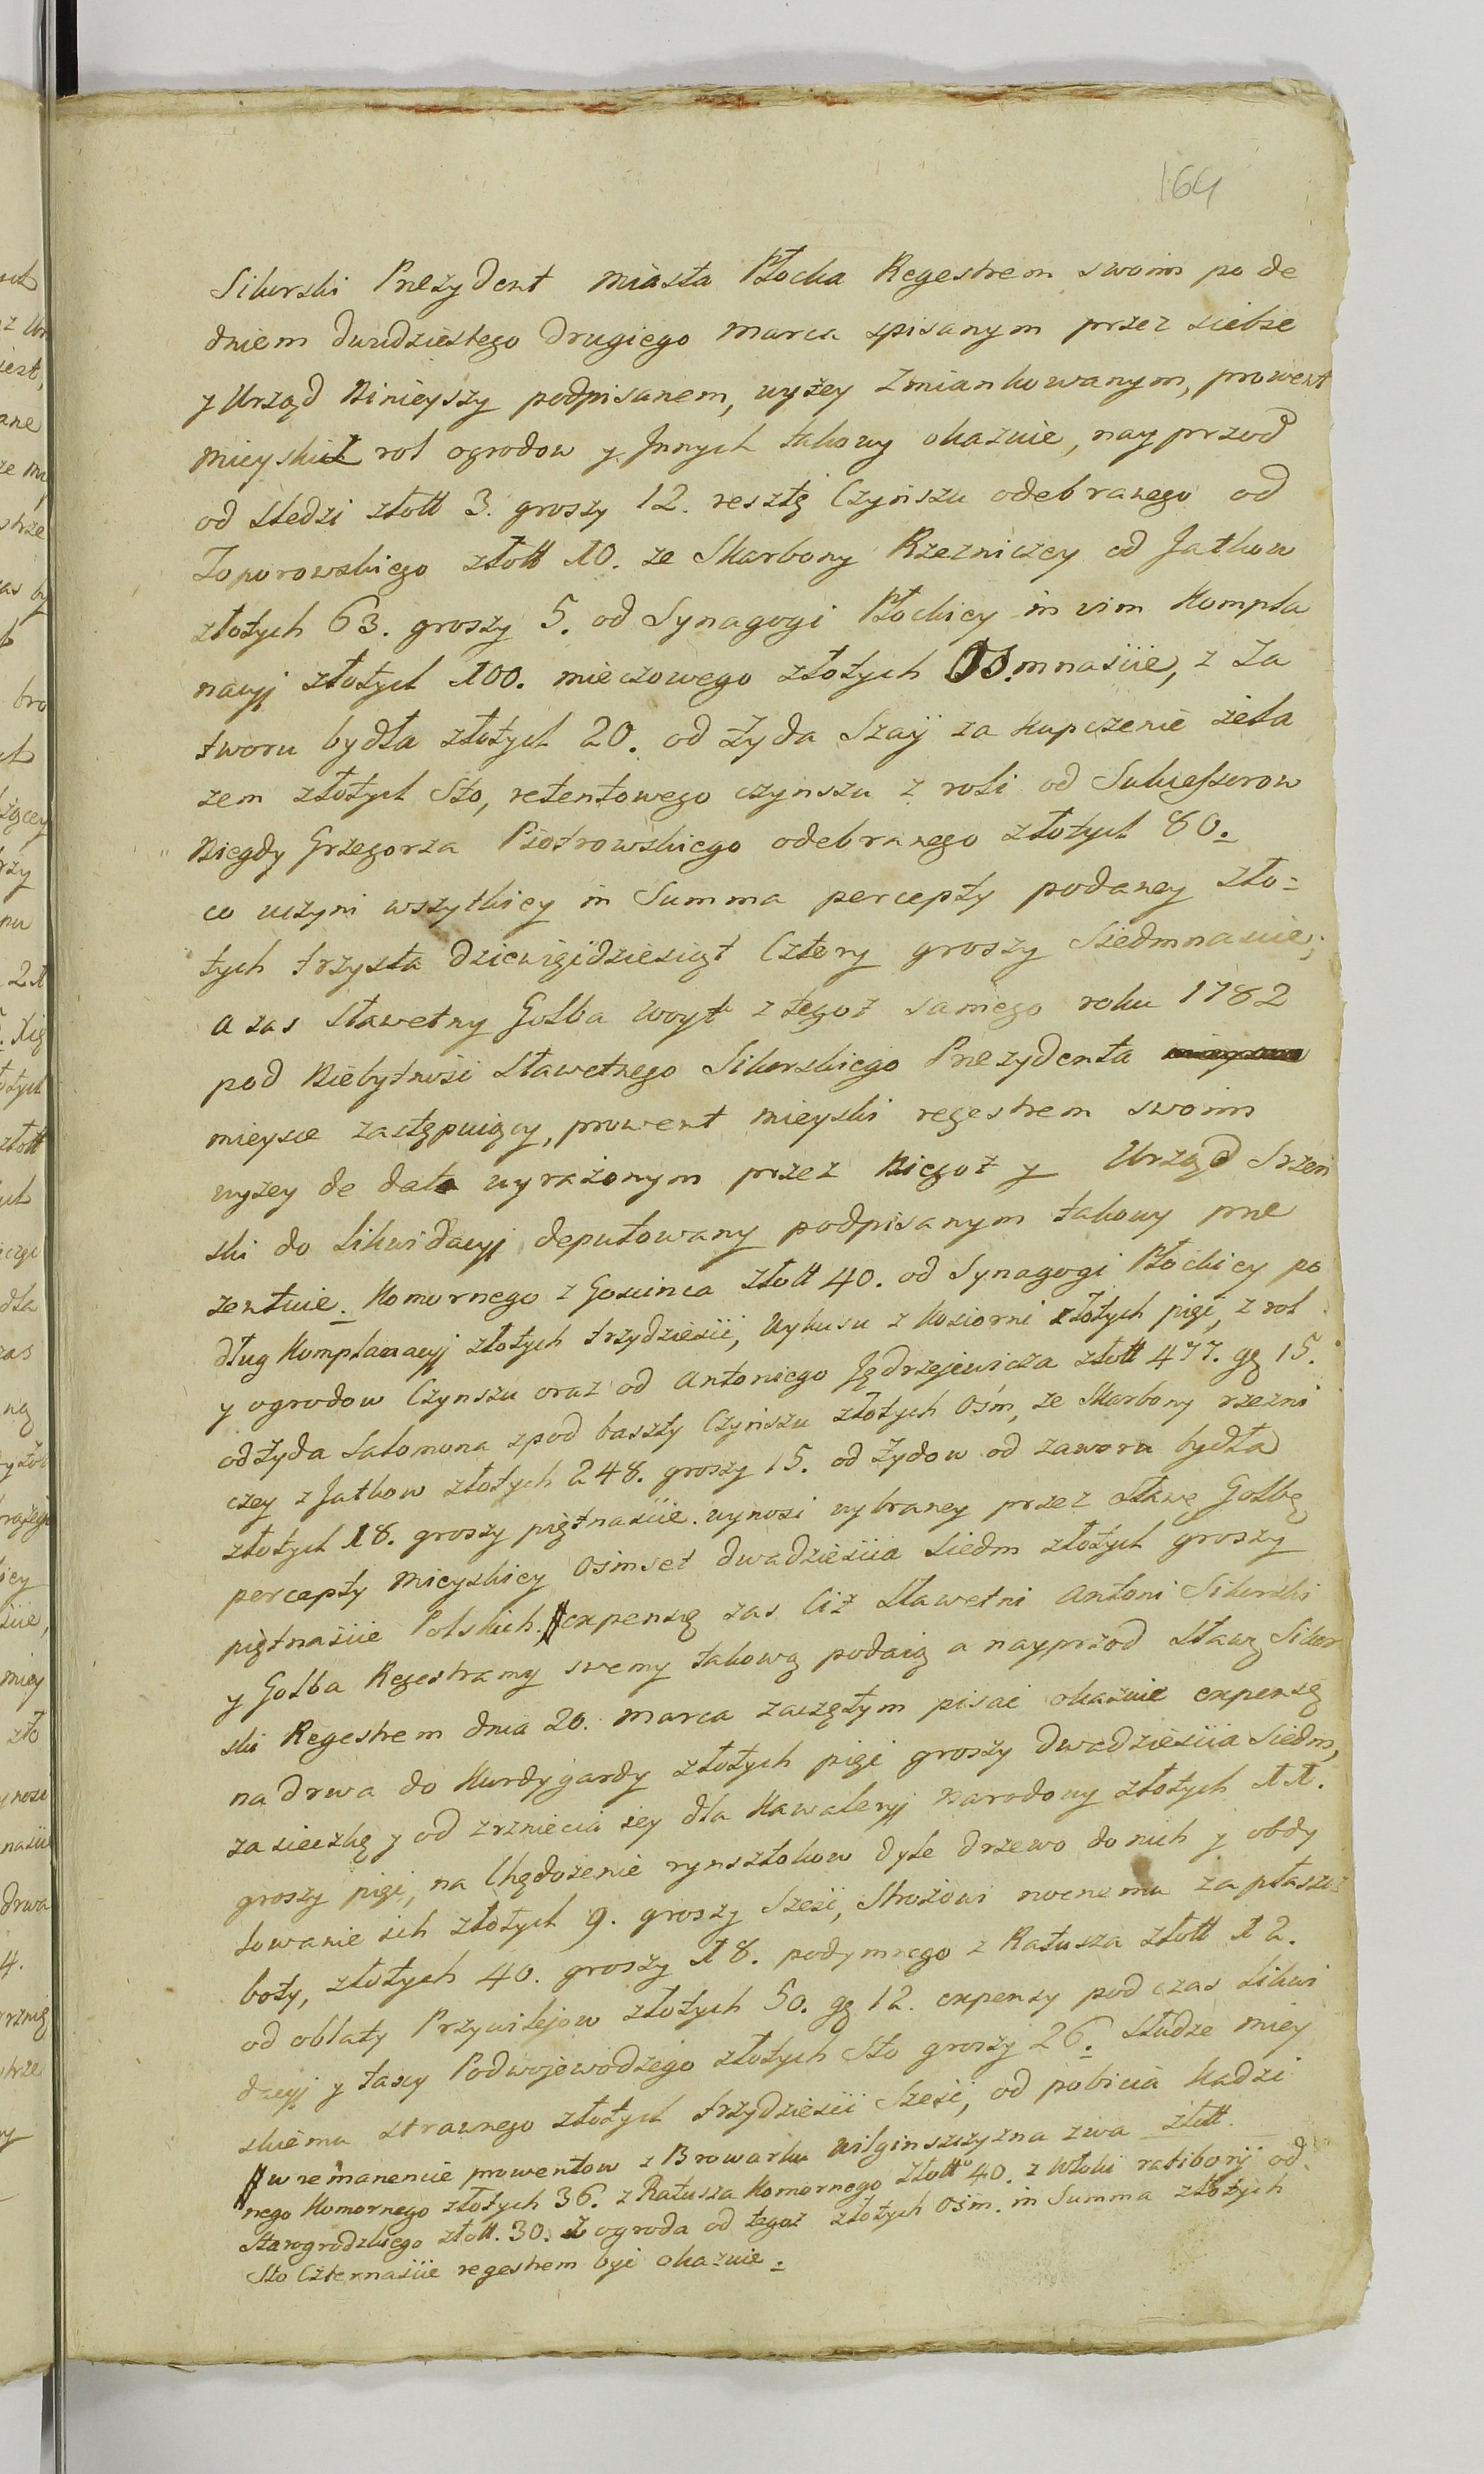 164
Sikorski Prezydent Miasta Płocka Regestrem swoim po de
dniem dwudziestego drugiego Marca spisanym przez siebie
y Urząd Ninieyszy podpisanem, wyżey Zmiankowanym, prowent
mieyski rol ogrodow y Innych takowy okazuie, nayprzod
od śledzi złott 3. groszy 12. resztę Czynszu odebranego od
Toporowskiego złott 10. ze Skarbony Rzezniczey od Jatkow
złotych 63. groszy 5. od Synagogi Płockiey in vim Kompla
nacyj złotych 100. mieczowego złotych Osmnaście, z Za
tworu bydła złotych 20. od Żyda Szaÿ za kupczenie żela
zem złotych Sto, retentowego czynszu z roli od Sukcessorow
Niegdy Grzegorza Piotrowskiego odebranego złotych 80.
co uczyni wszytkiey in Summa percepty podaney zło=
tych trzysta dziewięćdziesiąt Cztery groszy Siedmnaście;
a zas Sławetny Golba Woyt z tegoż samego roku 1782
pod Niebytność Sławetnego Sikorskiego Prezydenta
mieysce zastępuiący, prowent mieyski regestrem swoim
wyżey de data wyrażonym przez Niegoż y Urząd Srzen
ski do Likwidacyj deputowany podpisanym takowy pre
zentuie. Komornego z Goscinca złott 40. od Synagogi Płockiey po
dług Komplanacyj złotych trzydzieści, Wykusu z Kosiorni złotych pięć, z rol
y ogrodow Czynszu oraz od Antoniego Jędrzejewicza złott 477. gę 15.
od Żyda Salomona zpod baszty Czynszu złotych Ośm, ze Skarbony rzezni
czey z Jatkow złotych 248. groszy 15. od Żydow od zaworu bydła
złotych 18. groszy piętnaście. wynosi wybraney przez Sławę Golbę
percepty Mieyskiey Ośmset dwadzieścia siedm złotych groszy
piętnaście Polskich. expensę zas Ciż Sławetni Antoni Sikorski
y Golba Regestramy swemy takową podaią a nayprzod Sławę Sikor
ski Regestrem dnia 20. Marca zaczętym pisać okazuie expensę
na drwa do Kurdygardy złotych pięć groszy dwadzieścia Siedm,
za sieczkę y od zrzniecia iey dla Kawaleryj Narodowy złotych 11.
groszy pięć, na Chędożenie rynsztokow dyle drzewo do nich y obdy
lowanie ich złotych 9. groszy Sześć, Strożowi nocnemu za płaszcz
boty, złotych 40. groszy 18. podymnego z Ratusza złott 12.
od oblaty Przywilejow złotych 50. gę 12. expensy podczas Likwi
dacyj y taxy Podwojewodzego złotych Sto groszy 26. Słudze miey
skiemu strawnego złotych trzydzieści Sześć, od pobicia kadzi
w remanencie prowentow z Browarku Wilginszczyzna zwa złott.
nego Komornego złotych 36. z Ratusza Komornego złott 40. z Włoki ratiborÿ od
Starogrodzkiego złott. 30. Z ogroda od tegoż złotych Ośm. in Summa złotych
Sto Czternaście regestrem być okazuie.